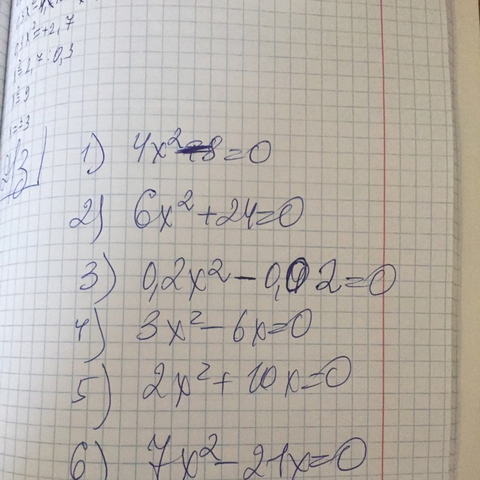 0,3x²=+2,7
x²=2,7:0,3
x²=9
x=±3
1) 4x²-8=0
2) 6x²+24=0
3) 0,2x²-0,02=0
4) 3x²-6x=0
5) 2x²+10x=0
6) 7x²-21x=0